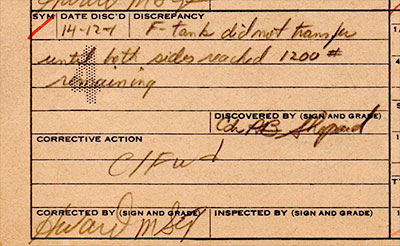 SYM DATE DISC'D DISCREPANCY
14-12-7 F-tank did not transfer
until both sides reached 1200 #
remaining
DISCOVERED BY (SIGN AND GRADE)
Cdr AB Shepard
CORRECTIVE ACTION
C/Fwd
CORRECTED BY (SIGN AND GRADE) INSPECTED BY (SIGN AND GRADE)